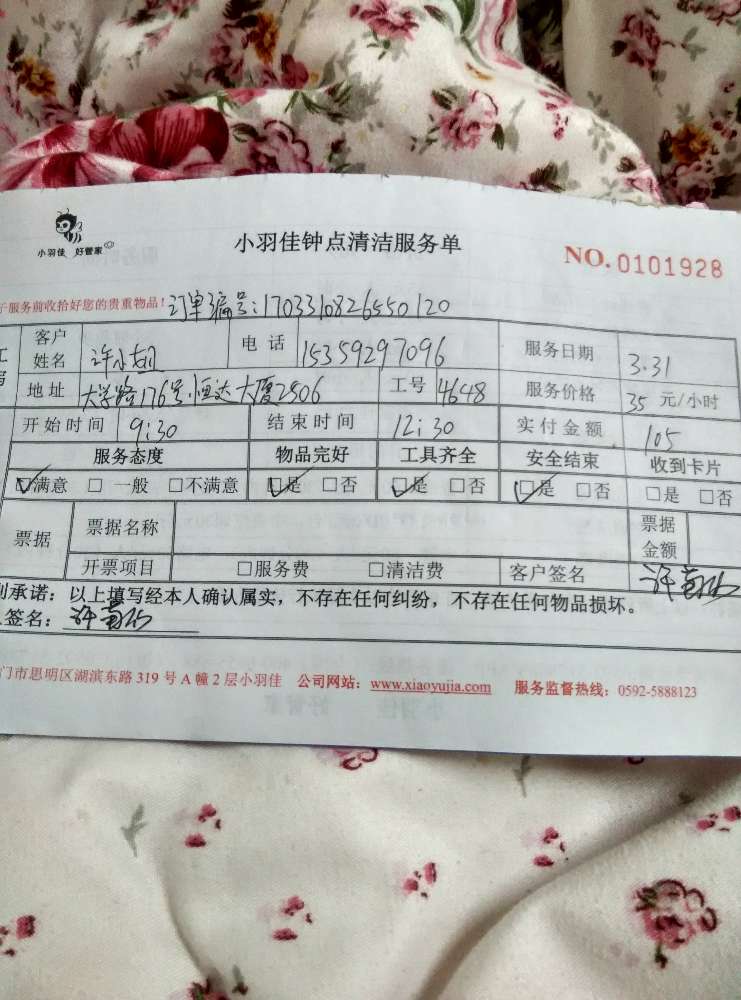 小羽佳 好管家
小羽佳钟点清洁服务单
NO.0101928
于服务前收拾好您的贵重物品！订单编号：1703310826550120
客户姓名 许小姐 电话 15359297096 服务日期 3.31
地址 大学路176号恒达大厦2506 工号 4648 服务价格 35 元/小时
开始时间 9:30 结束时间 12:30 实付金额 105
服务态度 物品完好 工具齐全 安全结束 收到卡片
☑满意 □一般 □不满意 ☑是 □否 ☑是 □否 ☑是 □否 □是 □否
票据 票据名称 票据金额
开票项目 □服务费 □清洁费 客户签名
承诺：以上填写经本人确认属实，不存在任何纠纷，不存在任何物品损坏。
签名：
门市思明区湖滨东路 319 号 A 幢 2 层小羽佳 公司网站：www.xiaoyujia.com 服务监督热线：0592-5888123